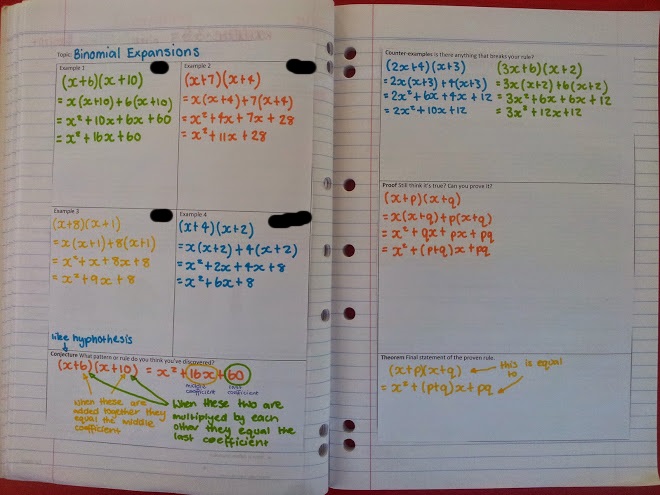 Topic: Binomial Expansions
Example 1
(x+6)(x+10)
= x(x+10)+6(x+10)
= x²+10x+6x+60
= x²+16x+60
Example 2
(x+7)(x+4)
= x(x+4)+7(x+4)
= x²+4x+7x+28
= x²+11x+28
Example 3
(x+8)(x+1)
= x(x+1)+8(x+1)
= x²+x+8x+8
= x²+9x+8
Example 4
(x+4)(x+2)
= x(x+2)+4(x+2)
= x²+2x+4x+8
= x²+6x+8
like hyphothesis
Conjecture What pattern or rule do you think you've discovered?
(x+6)(x+10) = x²+16x+60
middle coefficient
last coefficient
When these are
added together they
equal the middle
coefficient
When these two are
multiplyed by each
other they equal the
last coefficient
Counter-examples Is there anything that breaks your rule?
(2x+4)(x+3)
= 2x(x+3)+4(x+3)
= 2x²+6x+4x+12
= 2x²+10x+12
(3x+6)(x+2)
= 3x(x+2)+6(x+2)
= 3x²+6x+6x+12
= 3x²+12x+12
Proof Still think it's true? Can you prove it?
(x+p)(x+q)
= x(x+q)+p(x+q)
= x²+qx+px+pq
= x²+(p+q)x+pq
Theorem Final statement of the proven rule.
(x+p)(x+q)
= x²+(p+q)x+pq
this is equal
to